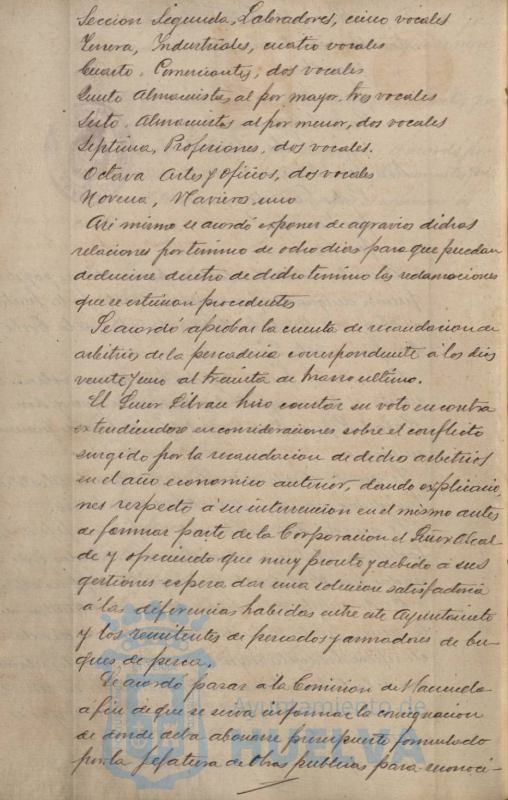 Seccion Segunda, Labradores, cinco vocales
Tercera, Industriales, cuatro vocales
Cuarto. Comerciantes, dos vocales
Quinto Almacenistas al por mayor, tres vocales
Sesto. Almacenistas al por menor, dos vocales
Septima, Profesiones, dos vocales.
Octava Artes y Oficios, dos vocales
Novena, Navieros, uno
Asi mismo se acordó exponer de agravios dichas
relaciones por termino de ocho dias para que puedan
deducirse dentro de dicho termino las reclamaciones
que se estiman procedentes
Se acordó aprobar la cuenta de recaudacion de
arbitrios de la pescaderia correspondiente á los dias
veinte y uno al treinta de Marzo ultimo.
El Señor hizo constar su voto en contra
extendiendose en consideraciones sobre el conflicto
surgido por la recaudacion de dichos arbitrios
en el año economico anterior, dando explicacio
nes respecto á su intervencion en el mismo antes
de formar parte de la Corporacion el Señor Alcal
de y ofreciendo que muy pronto y debido á sus
gestiones espera dar una solucion satisfactoria
á las diferencias habidas entre este Ayuntamiento
y los remitentes de pescados y armadores de bu-
ques de pesca.
Se acordó pasar á la Comision de Hacienda
a fin de que se sirva informar la consignacion
de donde deba abonarse presupuesto formulado
por la Jefatura de Obras publicas para reconoci-
Ayuntamiento de
HUELVA